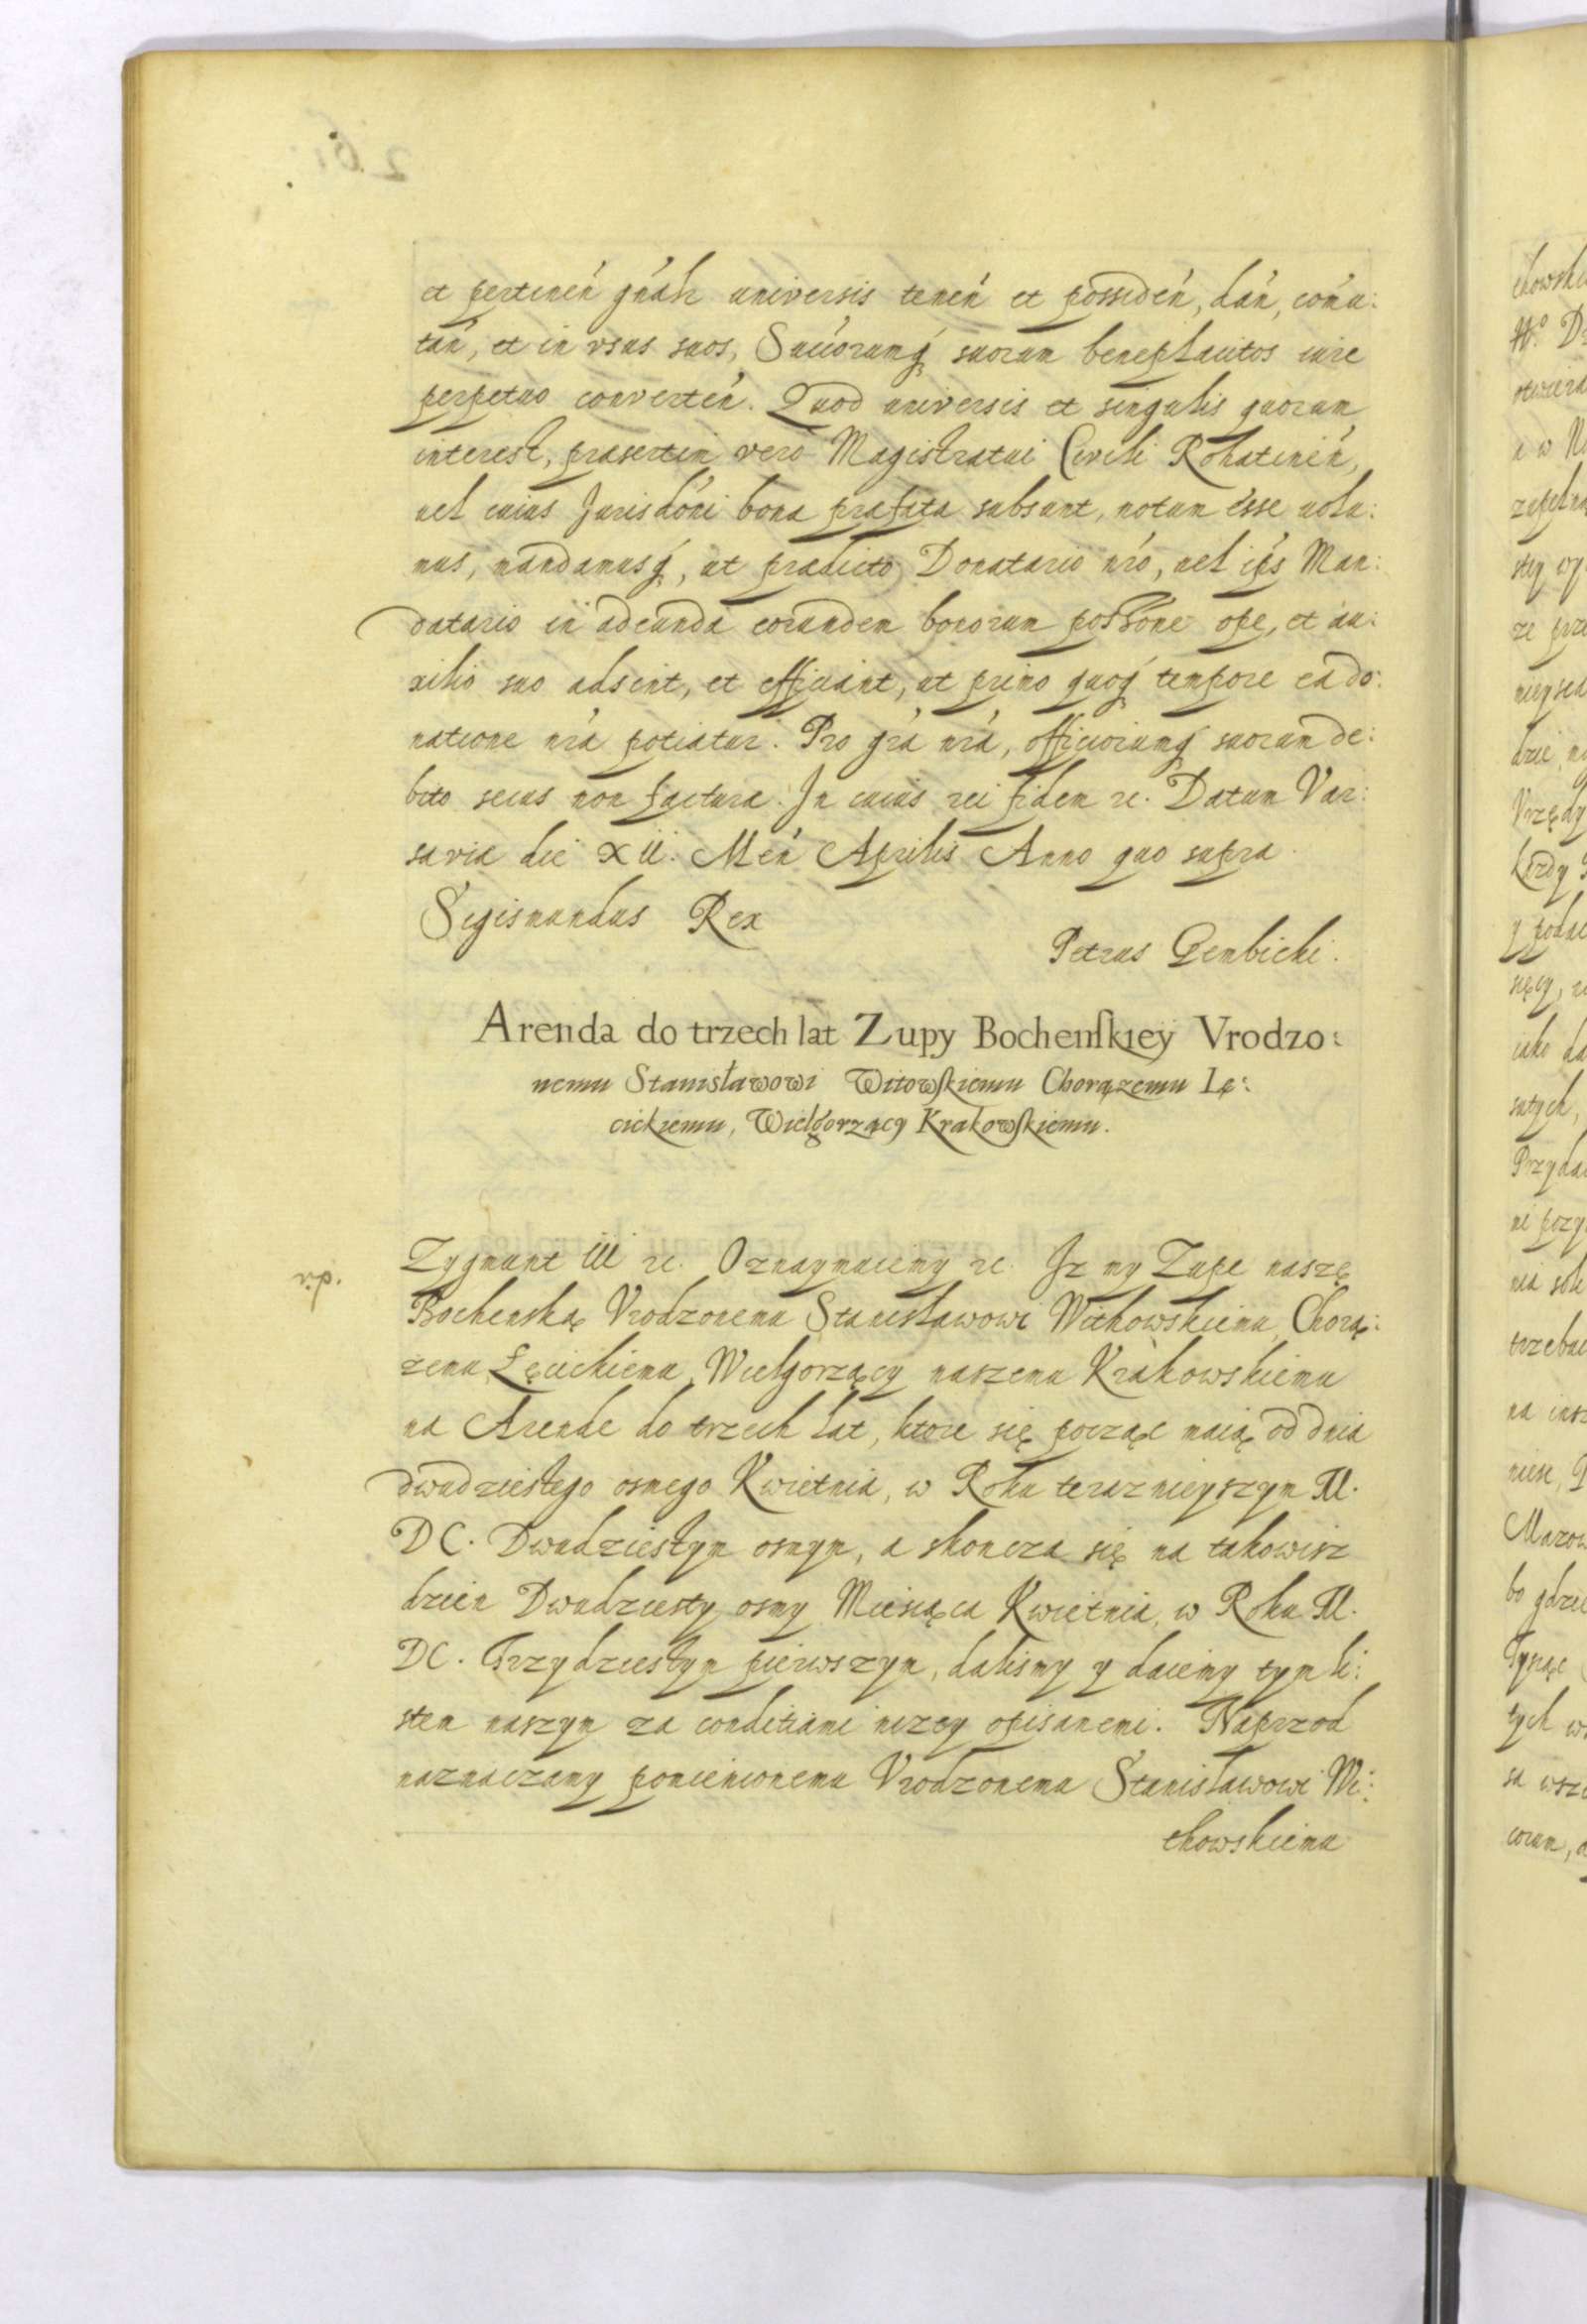 et pertineń gńalr universis teneń et possideń, dań, cōmu:
tań, et in vsus suos, Succorumq́ suorum beneplacitos iure
perpetuo converteń. Quod universis et singulis quorum
interest, præsertim vero Magistratui Civili Rohatineń,
uel cuius Jurisdóni bona præfata subsunt, notum esse uolu:
mus, mandamusq́, ut prædicto Donatario nŕo, uel iṕs Man:
datario in adeunda eorundem bonorum possóne ope, et au:
xilio suo adsint, et efficiant, ut primo quoq́ tempore eâ do:
natione nŕa potiatur. Pro gŕa nŕa, officiorumq́ suorum de:
bito secus non factura. In cuius rei fidem rc. Datum Var:
saviæ die XII. Meń Aprilis Anno quo supra.
Sigismundus Rex
Petrus Gembicki.
Arenda do trzech lat Zupy Bochenſkiey Vrodzo:
nemu Stanisławowi Witowſkiemu Chorązemu Lę:
cickiemu, Wielgorządcy Krakowſkiemu.
Zygmunt III rc. Oznaymuiemy rc. Iz my Zupe naszę
Bochenską Vrodzonemu Stanisławowi Witkowskiemu, Chorą:
zemu Łęcickiemu, Wielgorządcy naszemu Krakowskiemu
na Arende do trzech lat, ktore się począc maią od dnia
dwudziestego osmego Kwietnia, w Roku teraznieyszym M.
DC. Dwudziestym osmym, a skoncza się na takowisz
dzien Dwudziesty osmy Miesiąca Kwietnia, w Roku M.
DC. Trzydziestym pierwszym, dalismy y daiemy tym li:
stem naszym za conditiami nizey opisanemi. Naprzod
naznaczamy pomienionemu Vrodzonemu Stanisławowi Wi:
tkowskiemu